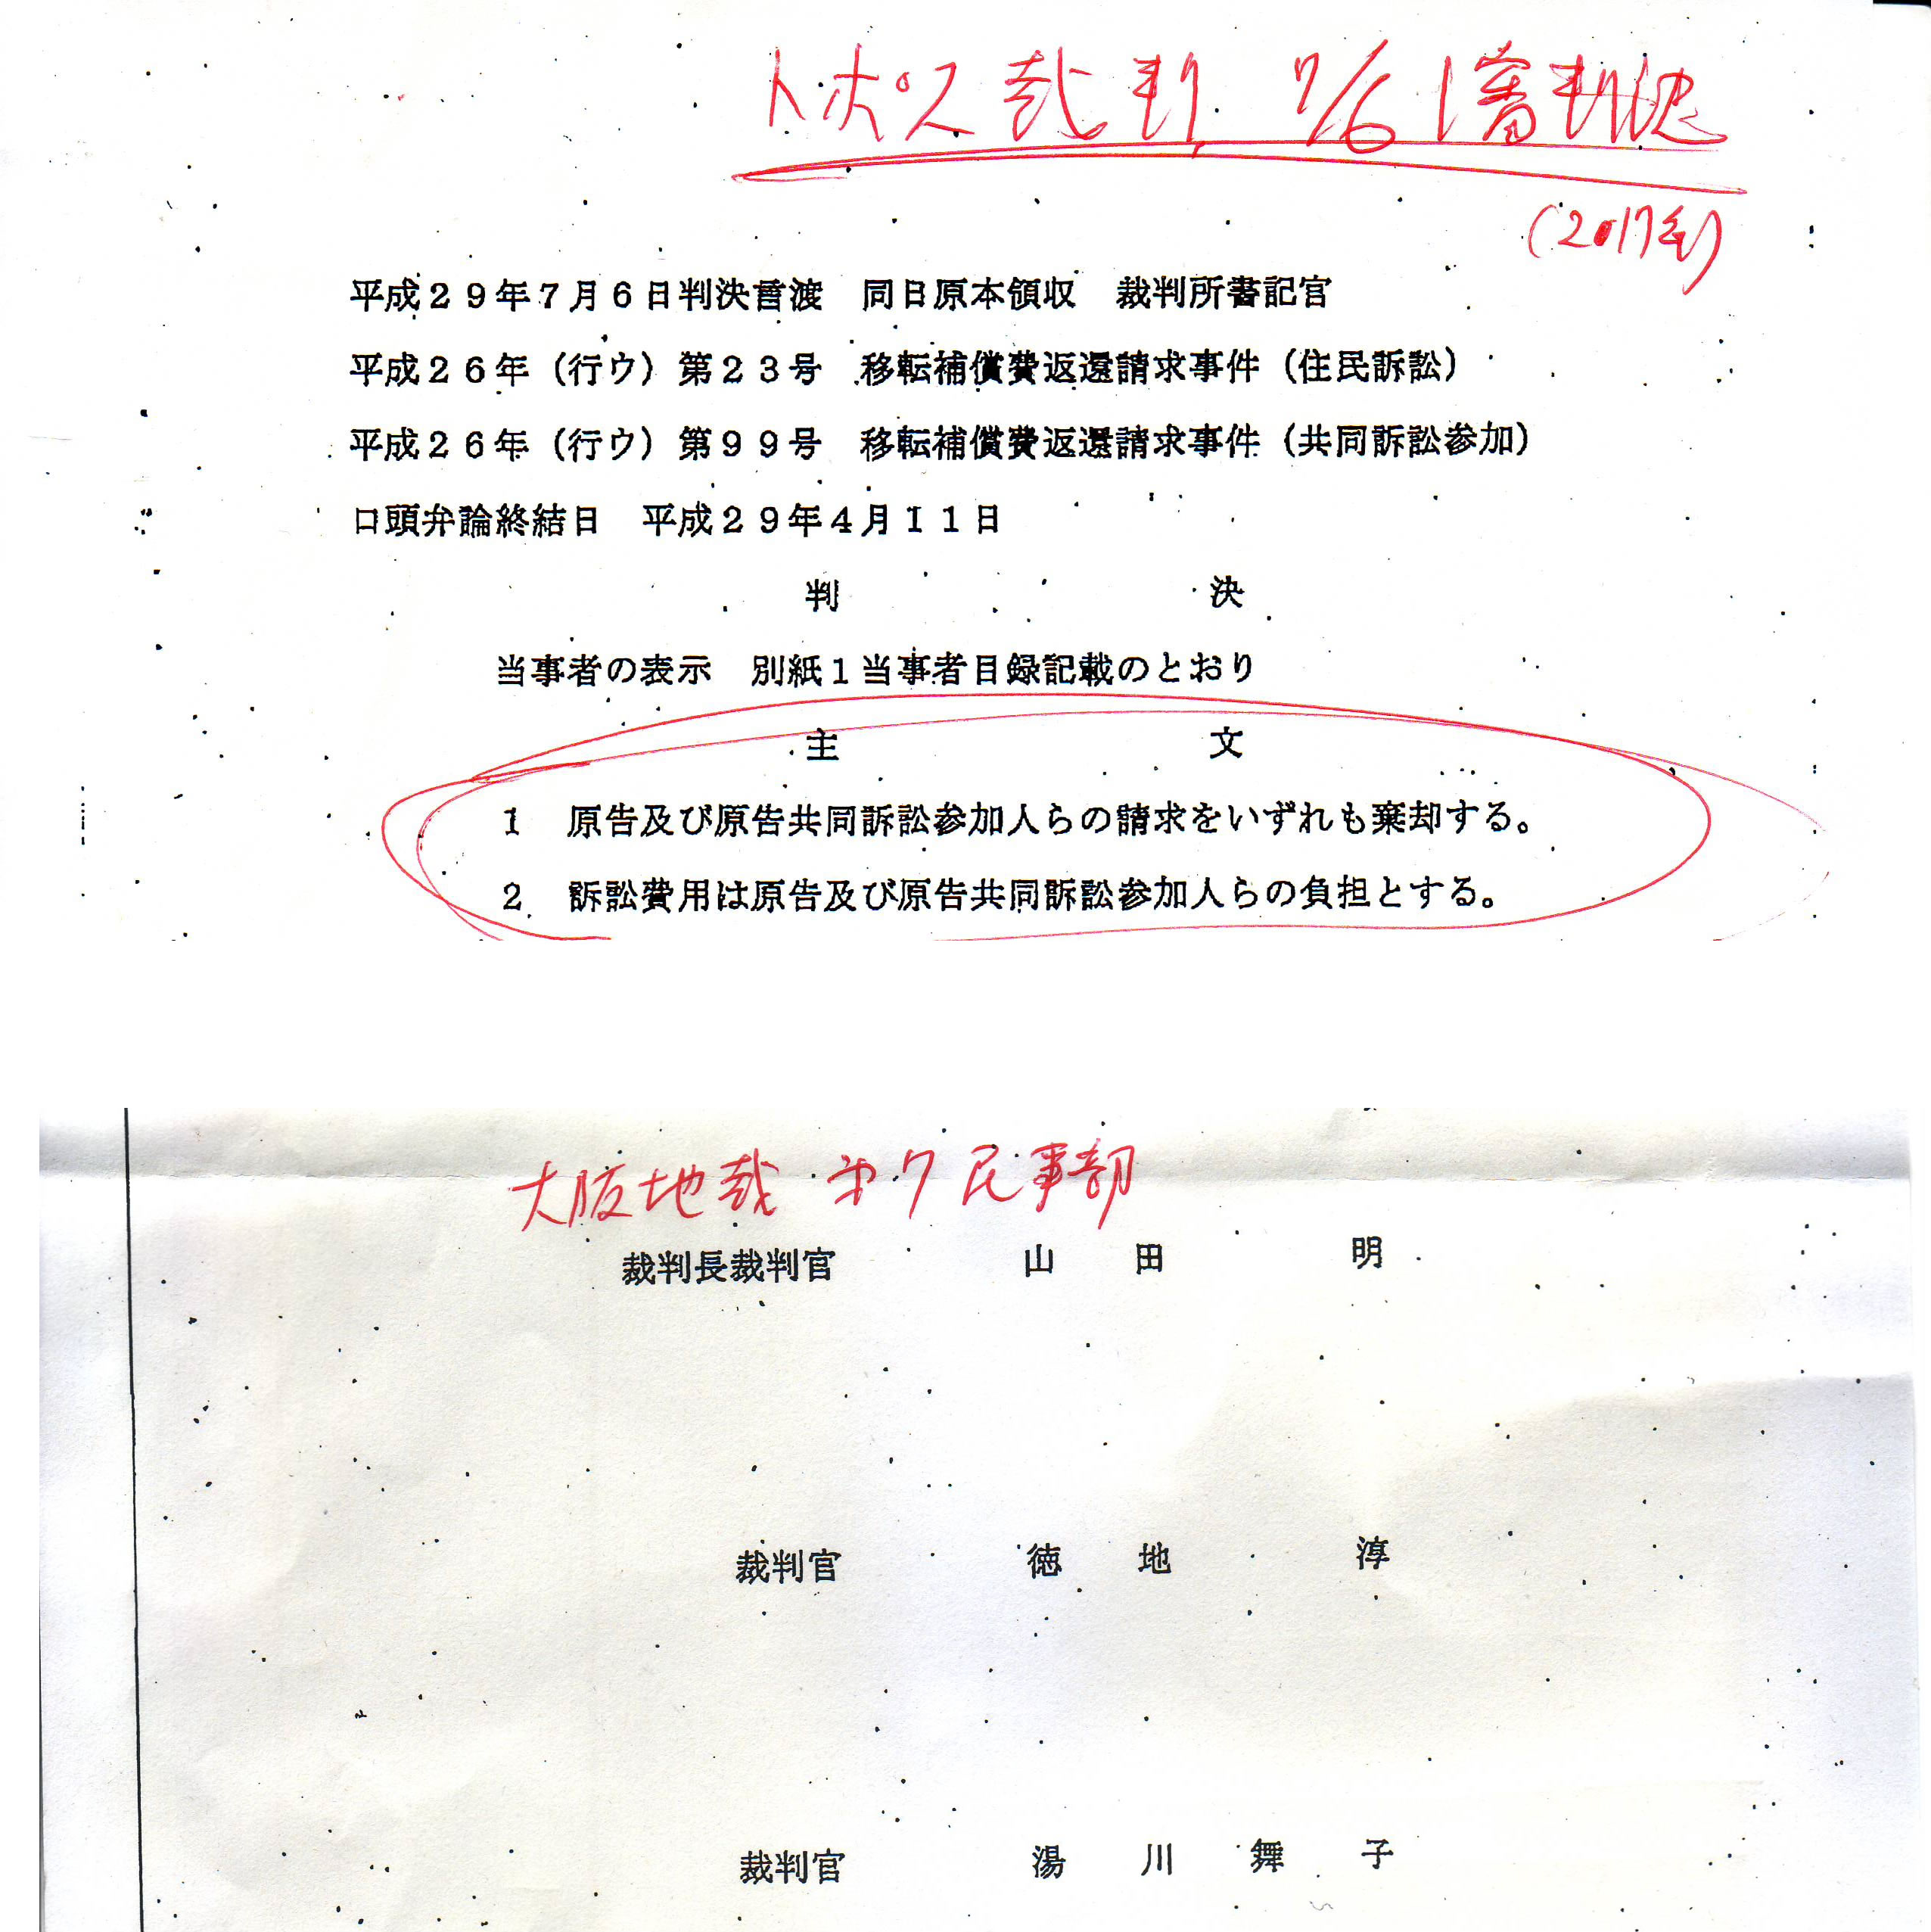 トポス裁判 7/6 1審判決
(2017年)
平成29年7月6日判決言渡　同日原本領収　裁判所書記官
平成26年（行ウ）第23号　移転補償費返還請求事件（住民訴訟）
平成26年（行ウ）第99号　移転補償費返還請求事件（共同訴訟参加）
口頭弁論終結日　平成29年4月11日
判決
当事者の表示　別紙1当事者目録記載のとおり
主文
1　原告及び原告共同訴訟参加人らの請求をいずれも棄却する。
2　訴訟費用は原告及び原告共同訴訟参加人らの負担とする。
大阪地裁 第7民事部
裁判長裁判官　山田　明
裁判官　徳地　淳
裁判官　湯川舞子